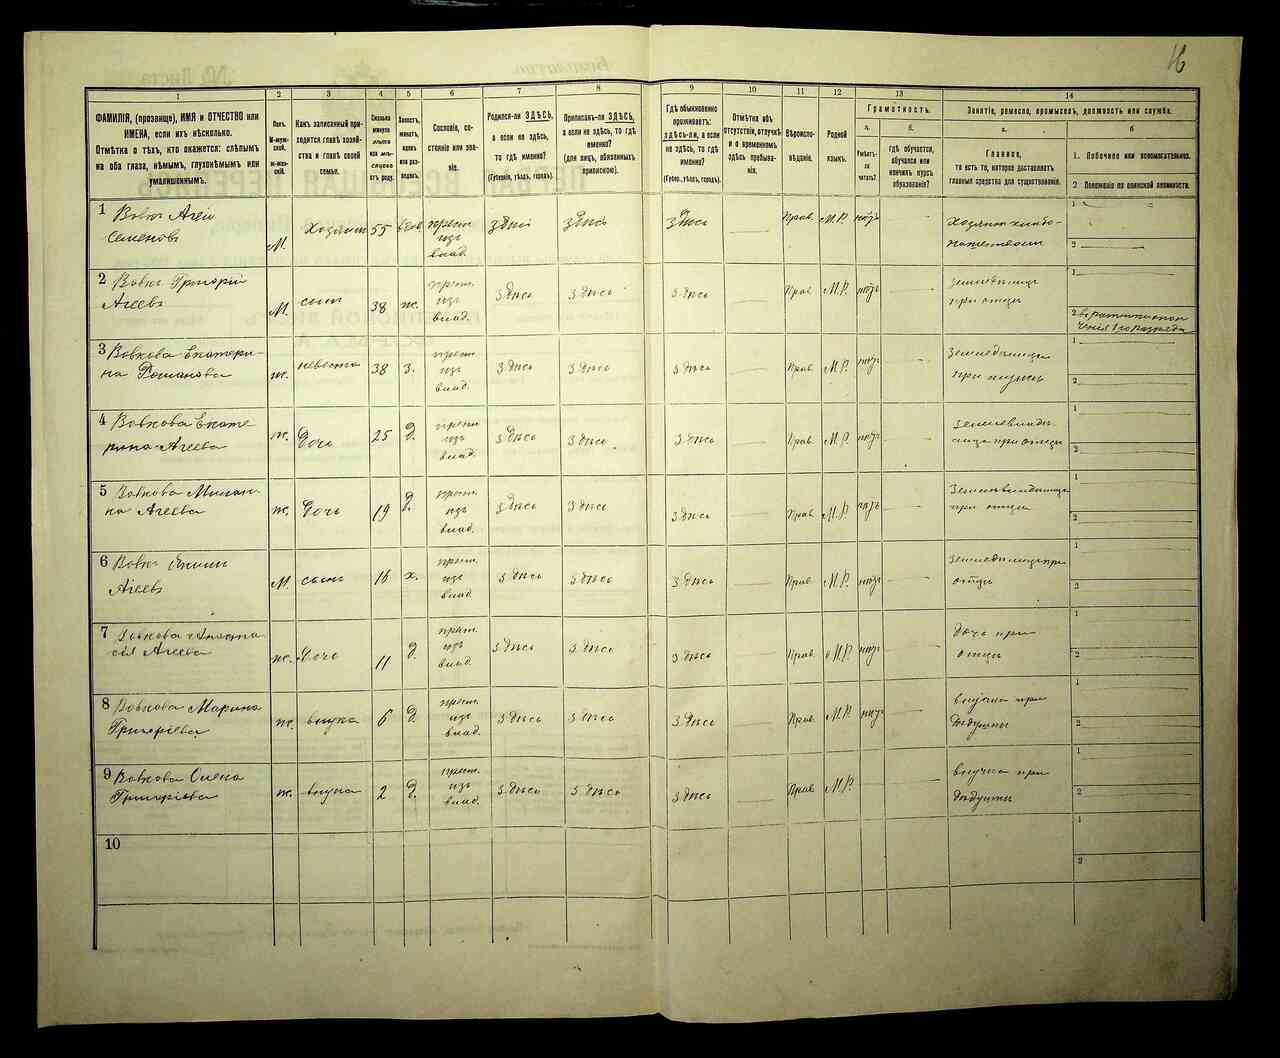 16
1 2 3 4 5 6 7 8 9 10 11 12 13 14
ФАМИЛІЯ, (прозвище), ИМЯ и ОТЧЕСТВО или
ИМЕНА, если ихъ нѣсколько.
Отмѣтка о тѣхъ, кто окажется: слѣпымъ
на оба глаза, нѣмымъ, глухонѣмымъ или
умалишеннымъ.
Полъ.
М-муж-
ской.
Ж-жен-
скій.
Какъ записанный при-
ходится главѣ хозяй-
ства и главѣ своей
семьи.
Сколько
минуло
лѣтъ
или мѣ-
сяцевъ
отъ роду.
Холостъ,
женатъ,
вдовъ
или раз-
веденъ.
Сословіе, со-
стояніе или зва-
ніе.
Родился-ли ЗДѢСЬ,
а если не здѣсь,
то гдѣ именно?
(Губернія, уѣздъ, городъ).
Приписанъ-ли ЗДѢСЬ,
а если не здѣсь, то гдѣ
именно?
(для лицъ, обязанныхъ
припискою).
Гдѣ обыкновенно
проживаетъ:
здѣсь-ли, а если
не здѣсь, то гдѣ
именно?
(Губерн., уѣздъ, городъ).
Отмѣтка объ
отсутствіи, отлучкѣ
и о временномъ
здѣсь пребыва-
ніи.
Вѣроиспо-
вѣданіе.
Родной
языкъ.
Грамотность.
а.
Умѣетъ-
ли
читать?
б.
гдѣ обучается,
обучался или
кончилъ курсъ
образованія?
Занятіе, ремесло, промыселъ, должность или служба.
а.
Главное,
то есть то, которое доставляетъ
главныя средства для существованія.
б
1. Побочное или вспомогательное.
2 Положеніе по воинской повинности.
1 Вовкъ Агѣй
Семеновъ
М. Хозяинъ 55 вдов крест. изъ влад. Здѣсь Здѣсь Здѣсь Прав. М.Р. нѣтъ
1
2
2 Вовкъ Григорій
Агѣевъ
М. сынъ 38 ж. крест. изъ влад. здѣсь здѣсь здѣсь Прав. М.Р. нѣтъ
при отцѣ
1
2
3 Вовкова Екатери-
на Романова
ж. невѣстка 38 з. крест. изъ влад. здѣсь здѣсь здѣсь Прав. М.Р. нѣтъ
при мужѣ
1
2
4 Вовкова Екате-
рина Агѣева
ж. дочь 25 д. крест. изъ влад. здѣсь здѣсь здѣсь Прав. М.Р. нѣтъ
при отцѣ
1
2
5 Вовкова
Агѣева
ж. дочь 19 д. крест. изъ влад. здѣсь здѣсь здѣсь Прав. М.Р. нѣтъ
при отцѣ
1
2
6 Вовкъ
Агѣевъ
М. сынъ 16 х. крест. изъ влад. здѣсь здѣсь здѣсь Прав. М.Р. нѣтъ
отцѣ
1
2
7 Вовкова Анаста-
сія Агѣева
ж. дочь 11 д. крест. изъ влад. здѣсь здѣсь здѣсь Прав. М.Р. нѣтъ
дочь при
отцѣ
1
2
8 Вовкова Марина
Григоріева
ж. внука 6 д. крест. изъ влад. здѣсь здѣсь здѣсь Прав. М.Р. нѣтъ
внучка при
дѣдушкѣ
1
2
9 Вовкова Олена
Григоріева
ж. внука 2 д. крест. изъ влад. здѣсь здѣсь здѣсь Прав. М.Р.
внучка при
дѣдушкѣ
1
2
10
1
2